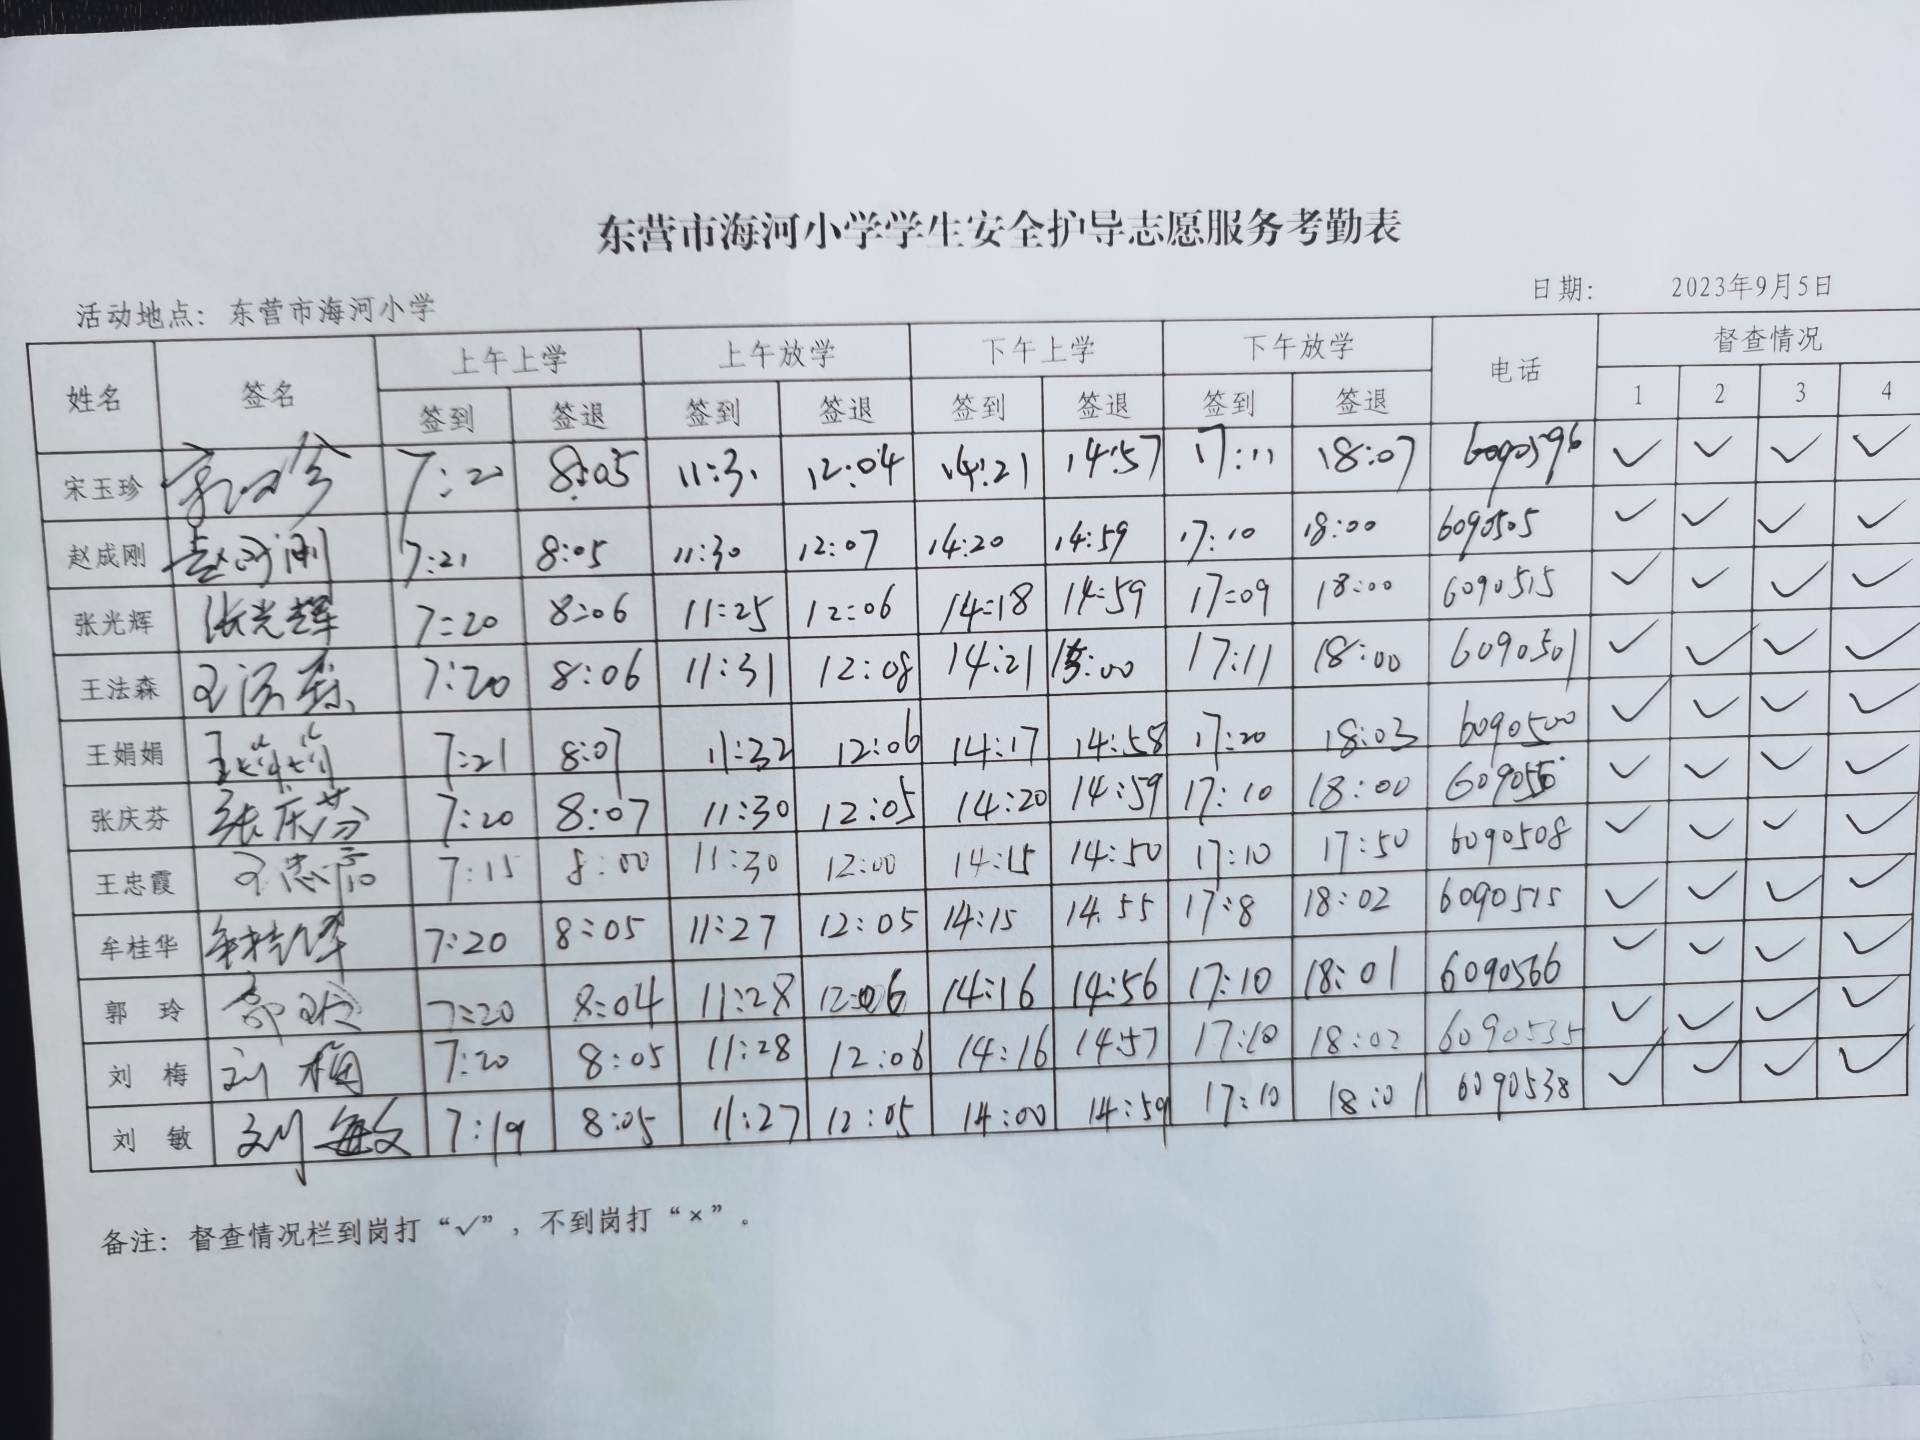 东营市海河小学学生安全护导志愿服务考勤表
活动地点：东营市海河小学 日期： 2023年9月5日
姓名 签名 上午上学 上午放学 下午上学 下午放学 电话 督查情况
签到 签退 签到 签退 签到 签退 签到 签退 1 2 3 4
宋玉珍 宋玉珍 7:20 8:05 11:31 12:04 14:21 14:57 17:11 18:07 6090596 ✓ ✓ ✓ ✓
赵成刚 赵成刚 7:21 8:05 11:30 12:07 14:20 14:59 17:10 18:00 6090505 ✓ ✓ ✓ ✓
张光辉 张光辉 7:20 8:06 11:25 12:06 14:18 14:59 17:09 18:00 6090515 ✓ ✓ ✓ ✓
王法森 王法森 7:20 8:06 11:31 12:08 14:21 15:00 17:11 18:00 6090501 ✓ ✓ ✓ ✓
王娟娟 王娟娟 7:21 8:07 11:32 12:06 14:17 14:58 17:20 18:03 6090500 ✓ ✓ ✓ ✓
张庆芬 张庆芬 7:20 8:07 11:30 12:05 14:20 14:59 17:10 18:00 ✓ ✓ ✓ ✓
王忠霞 王忠霞 7:15 8:00 11:30 12:00 14:15 14:50 17:10 17:50 6090508 ✓ ✓ ✓ ✓
牟桂华 牟桂华 7:20 8:05 11:27 12:05 14:15 14:55 17:8 18:02 6090515 ✓ ✓ ✓ ✓
郭玲 郭玲 7:20 8:04 11:28 12:06 14:16 14:56 17:10 18:01 6090566 ✓ ✓ ✓ ✓
刘梅 刘梅 7:20 8:05 11:28 12:06 14:16 14:57 17:10 18:02 6090535 ✓ ✓ ✓ ✓
刘敏 刘敏 7:19 8:05 11:27 12:05 14:00 14:59 17:10 18:01 6090538 ✓ ✓ ✓ ✓
备注：督查情况栏到岗打“✓”，不到岗打“×”。